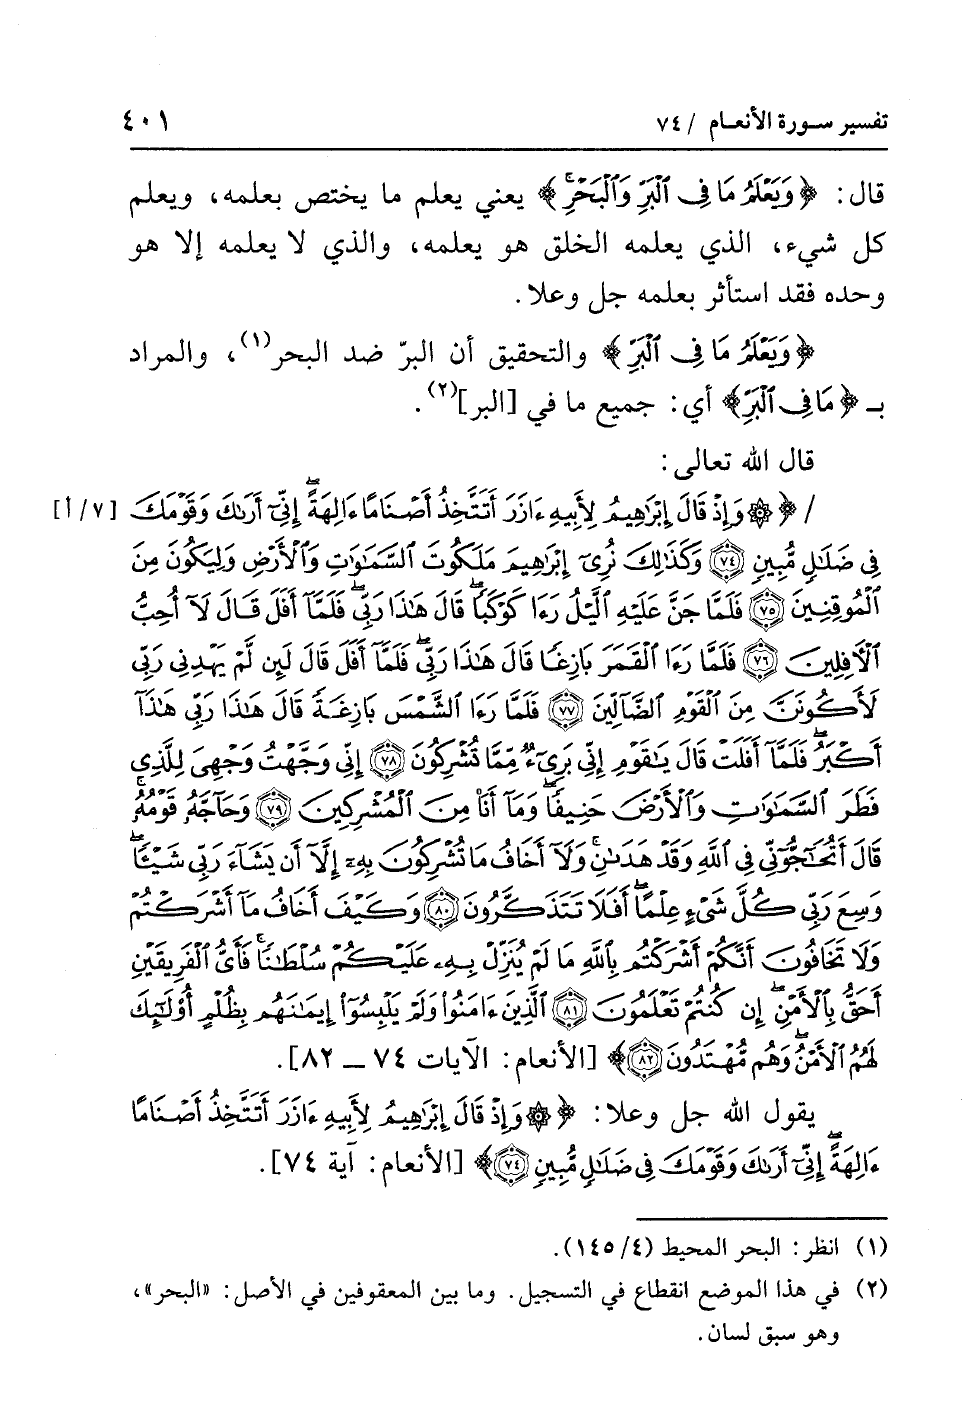 تفسير سورة الأنعام / ٧٤
٤٠١
قال: ﴿وَيَعْلَمُ مَا فِي ٱلْبَرِّ وَٱلْبَحْرِۚ﴾ يعني يعلم ما يختص بعلمه، ويعلم
كل شيء، الذي يعلمه الخلق هو يعلمه، والذي لا يعلمه إلا هو
وحده فقد استأثر بعلمه جل وعلا.
﴿وَيَعْلَمُ مَا فِي ٱلْبَرِّ﴾ والتحقيق أن البرّ ضد البحر(١)، والمراد
بـ ﴿مَا فِي ٱلْبَرِّ﴾ أي: جميع ما في [البر](٢).
قال الله تعالى:
/ ﴿۞ وَإِذْ قَالَ إِبْرَٰهِيمُ لِأَبِيهِ ءَازَرَ أَتَتَّخِذُ أَصْنَامًا ءَالِهَةًۖ إِنِّيٓ أَرَىٰكَ وَقَوْمَكَ [٧/أ]
فِي ضَلَٰلٍ مُّبِينٍ ٧٤ وَكَذَٰلِكَ نُرِيٓ إِبْرَٰهِيمَ مَلَكُوتَ ٱلسَّمَٰوَٰتِ وَٱلْأَرْضِ وَلِيَكُونَ مِنَ
ٱلْمُوقِنِينَ ٧٥ فَلَمَّا جَنَّ عَلَيْهِ ٱلَّيْلُ رَءَا كَوْكَبًاۖ قَالَ هَٰذَا رَبِّيۖ فَلَمَّآ أَفَلَ قَالَ لَآ أُحِبُّ
ٱلْأٓفِلِينَ ٧٦ فَلَمَّا رَءَا ٱلْقَمَرَ بَازِغًا قَالَ هَٰذَا رَبِّيۖ فَلَمَّآ أَفَلَ قَالَ لَئِن لَّمْ يَهْدِنِي رَبِّي
لَأَكُونَنَّ مِنَ ٱلْقَوْمِ ٱلضَّآلِّينَ ٧٧ فَلَمَّا رَءَا ٱلشَّمْسَ بَازِغَةً قَالَ هَٰذَا رَبِّي هَٰذَآ
أَكْبَرُۖ فَلَمَّآ أَفَلَتْ قَالَ يَٰقَوْمِ إِنِّي بَرِيٓءٌ مِّمَّا تُشْرِكُونَ ٧٨ إِنِّي وَجَّهْتُ وَجْهِيَ لِلَّذِي
فَطَرَ ٱلسَّمَٰوَٰتِ وَٱلْأَرْضَ حَنِيفًاۖ وَمَآ أَنَا۠ مِنَ ٱلْمُشْرِكِينَ ٧٩ وَحَآجَّهُۥ قَوْمُهُۥۚ
قَالَ أَتُحَٰٓجُّوٓنِّي فِي ٱللَّهِ وَقَدْ هَدَىٰنِۚ وَلَآ أَخَافُ مَا تُشْرِكُونَ بِهِۦٓ إِلَّآ أَن يَشَآءَ رَبِّي شَيْـًٔاۗ
وَسِعَ رَبِّي كُلَّ شَيْءٍ عِلْمًاۗ أَفَلَا تَتَذَكَّرُونَ ٨٠ وَكَيْفَ أَخَافُ مَآ أَشْرَكْتُمْ
وَلَا تَخَافُونَ أَنَّكُمْ أَشْرَكْتُم بِٱللَّهِ مَا لَمْ يُنَزِّلْ بِهِۦ عَلَيْكُمْ سُلْطَٰنًاۚ فَأَيُّ ٱلْفَرِيقَيْنِ
أَحَقُّ بِٱلْأَمْنِۖ إِن كُنتُمْ تَعْلَمُونَ ٨١ ٱلَّذِينَ ءَامَنُوا۟ وَلَمْ يَلْبِسُوٓا۟ إِيمَٰنَهُم بِظُلْمٍ أُو۟لَٰٓئِكَ
لَهُمُ ٱلْأَمْنُ وَهُم مُّهْتَدُونَ ٨٢﴾ [الأنعام: الآيات ٧٤ ــ ٨٢].
يقول الله جل وعلا: ﴿۞ وَإِذْ قَالَ إِبْرَٰهِيمُ لِأَبِيهِ ءَازَرَ أَتَتَّخِذُ أَصْنَامًا
ءَالِهَةًۖ إِنِّيٓ أَرَىٰكَ وَقَوْمَكَ فِي ضَلَٰلٍ مُّبِينٍ ٧٤﴾ [الأنعام: آية ٧٤].
(١) انظر: البحر المحيط (٤/١٤٥).
(٢) في هذا الموضع انقطاع في التسجيل. وما بين المعقوفين في الأصل: «البحر»،
وهو سبق لسان.